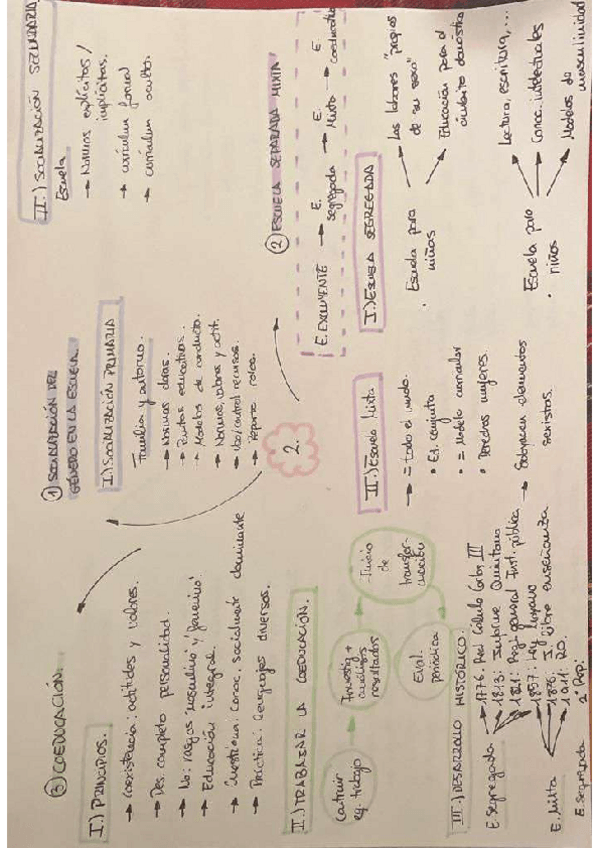 2.
① SOCIALIZACIÓN DEL
GÉNERO EN LA ESCUELA.
I.) SOCIALIZACIÓN PRIMARIA
Familia y entorno.
→ Normas claras.
→ Pautas educativas.
→ Modelos de conducta.
→ Normas, valores y actit.
→ Uso/control recursos.
→ Reparto roles.
II.) SOCIALIZACIÓN SECUNDARIA
Escuela
→ Normas explícitas /
implícitas.
→ currículum formal
→ currículum oculto.
② ESCUELA SEPARADA MIXTA
E. EXCLUYENTE → E. segregada → E. Mixta → E. coeducativa
I.) ESCUELA SEGREGADA
· Escuela para
niñas
Las labores "propias
de su sexo"
Educación para el
ámbito doméstico
· Escuela para
niños
Lectura, escritura,...
Conoc. intelectuales
Modelos de
masculinidad
II.) Escuela Mixta
→ = todo el mundo.
• Ed. conjunta
• = Modelo curricular
• Derechos mujeres.
→ Subyacen elementos
sexistas.
③ COEDUCACIÓN.
I.) PRINCIPIOS.
→ Coexistencia: actitudes y valores.
→ Des. completo personalidad.
→ No: rasgos 'masculino' y 'femenino'.
→ Educación integral.
→ Cuestiona: Conoc. socialmente dominante
→ Práctica: lenguajes diversos.
II.) TRABAJAR LA COEDUCACIÓN.
eq. trabajo
Investig +
análisis
resultados
Inicio
de
transfor-
mación
Eval.
periódica
III.) DESARROLLO HISTÓRICO.
E. Segregada
1776: Real Cédula Carlos III
1813: Informe Quintana
1821: Regl. general Inst. pública
1857: Ley Moyano
1876: I. libre enseñanza
E. Mixta
2ª Rep.
E. segregada